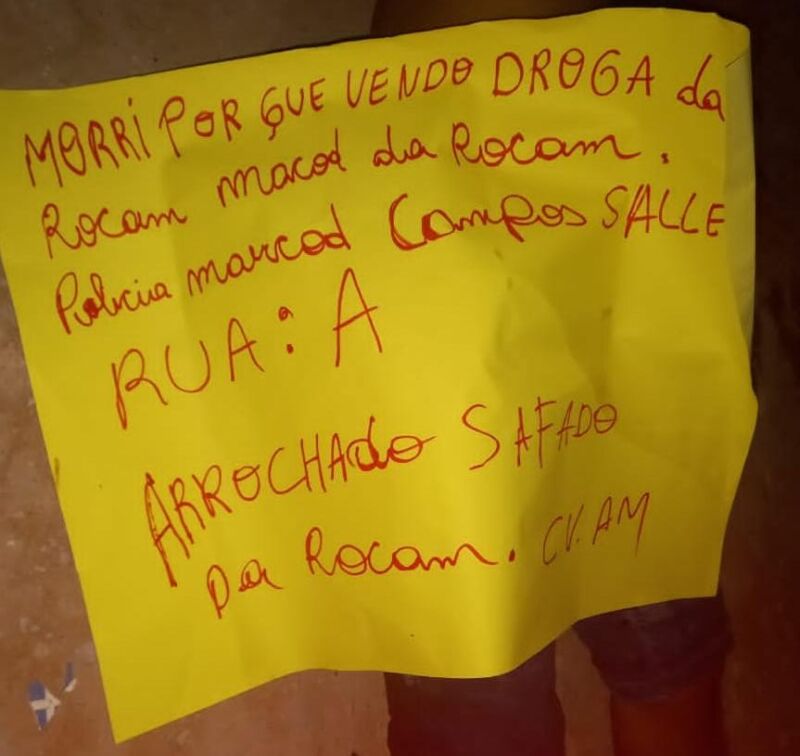 MORRI POR QUE VENDO DROGA da
Rocam macod da Rocam.
Policia marcod Campos SALLE
RUA: A
ARROCHAdo SAFADO
Da Rocam. CV.AM